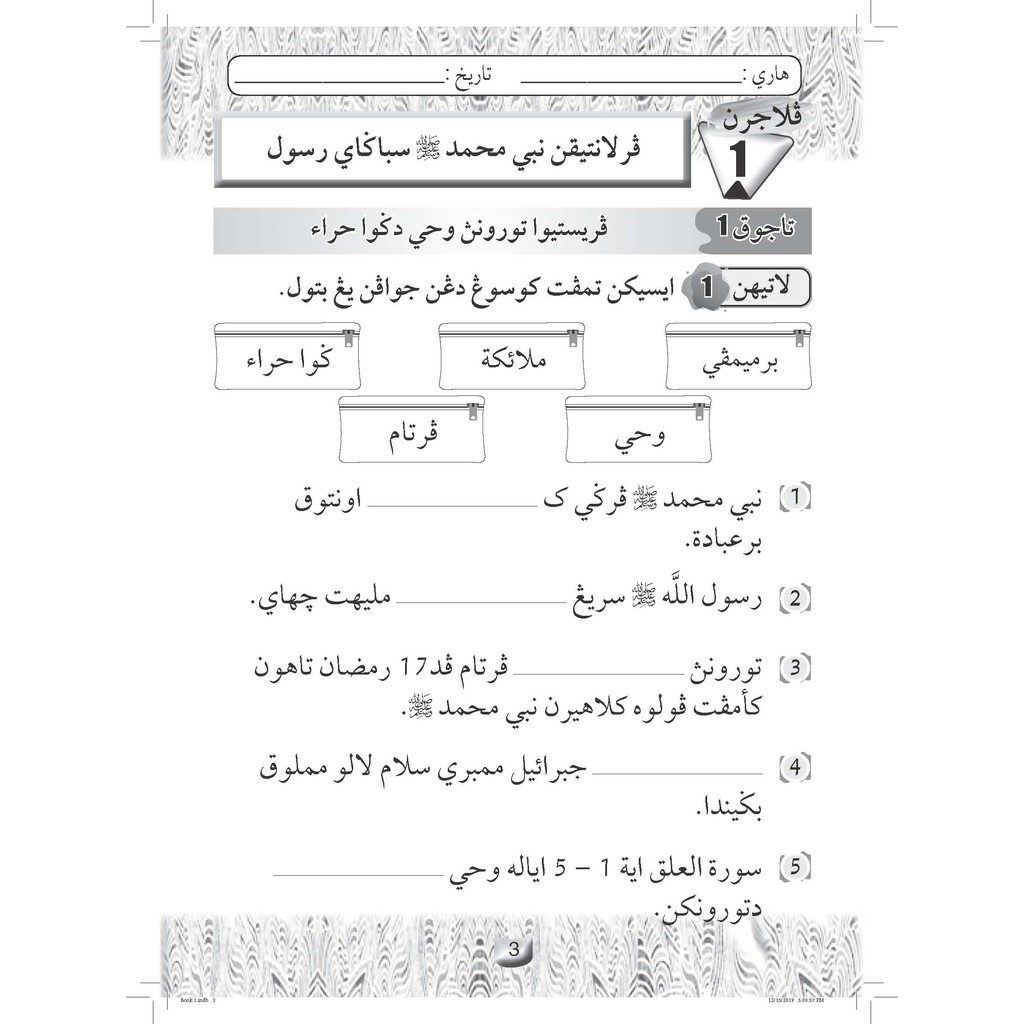 هاري : ____________ تاريخ : ____________
ڤلاجرن
1
ڤرلانتيقن نبي محمد ﷺ سباݢاي رسول
تاجوق 1
ڤريستيوا تورونڽ وحي دݢوا حراء
لاتيهن 1 ايسيكن تمڤت كوسوڠ دڠن جواڤن يڠ بتول.
برميمڤي
ملائكة
ݢوا حراء
وحي
ڤرتام
1 نبي محمد ﷺ ڤرݢي ک ____________ اونتوق
برعبادة.
2 رسول اللَّه ﷺ سريڠ ____________ مليهت چهاي.
3 تورونڽ ____________ ڤرتام ڤد17 رمضان تاهون
كأمڤت ڤولوه كلاهيرن نبي محمد ﷺ.
4 ____________ جبرائيل ممبري سلام لالو مملوق
بݢيندا.
5 سورة العلق اية 1 – 5 اياله وحي ____________
دتورونكن.
3
Book 1.indb 3
12/13/2019 5:00:57 PM